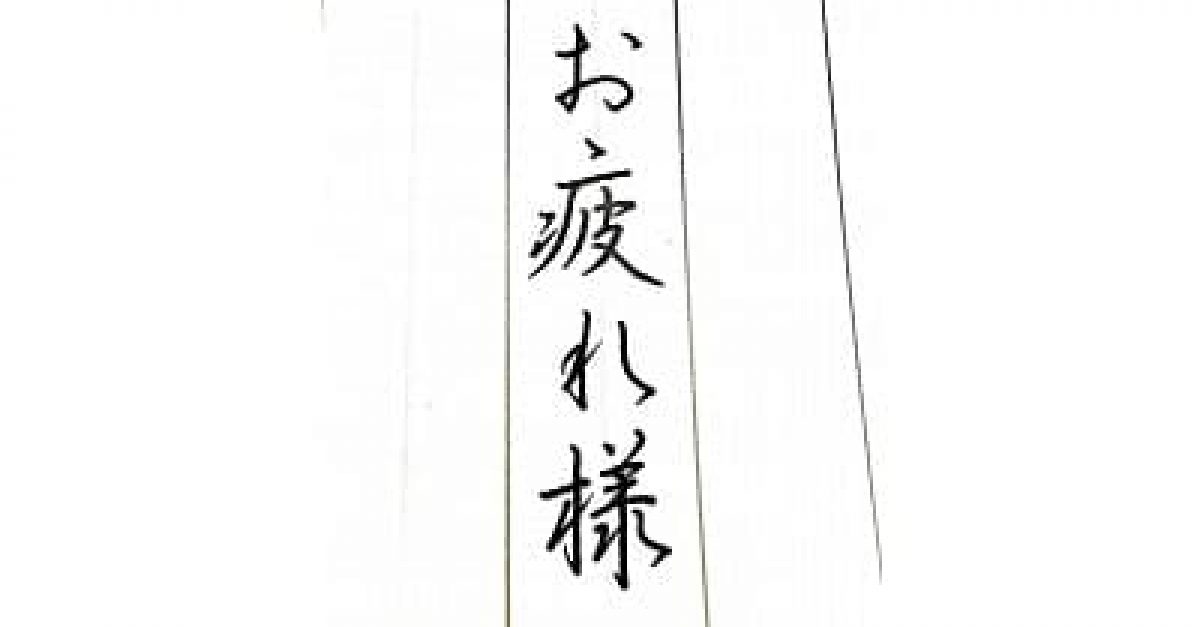 お疲れ様